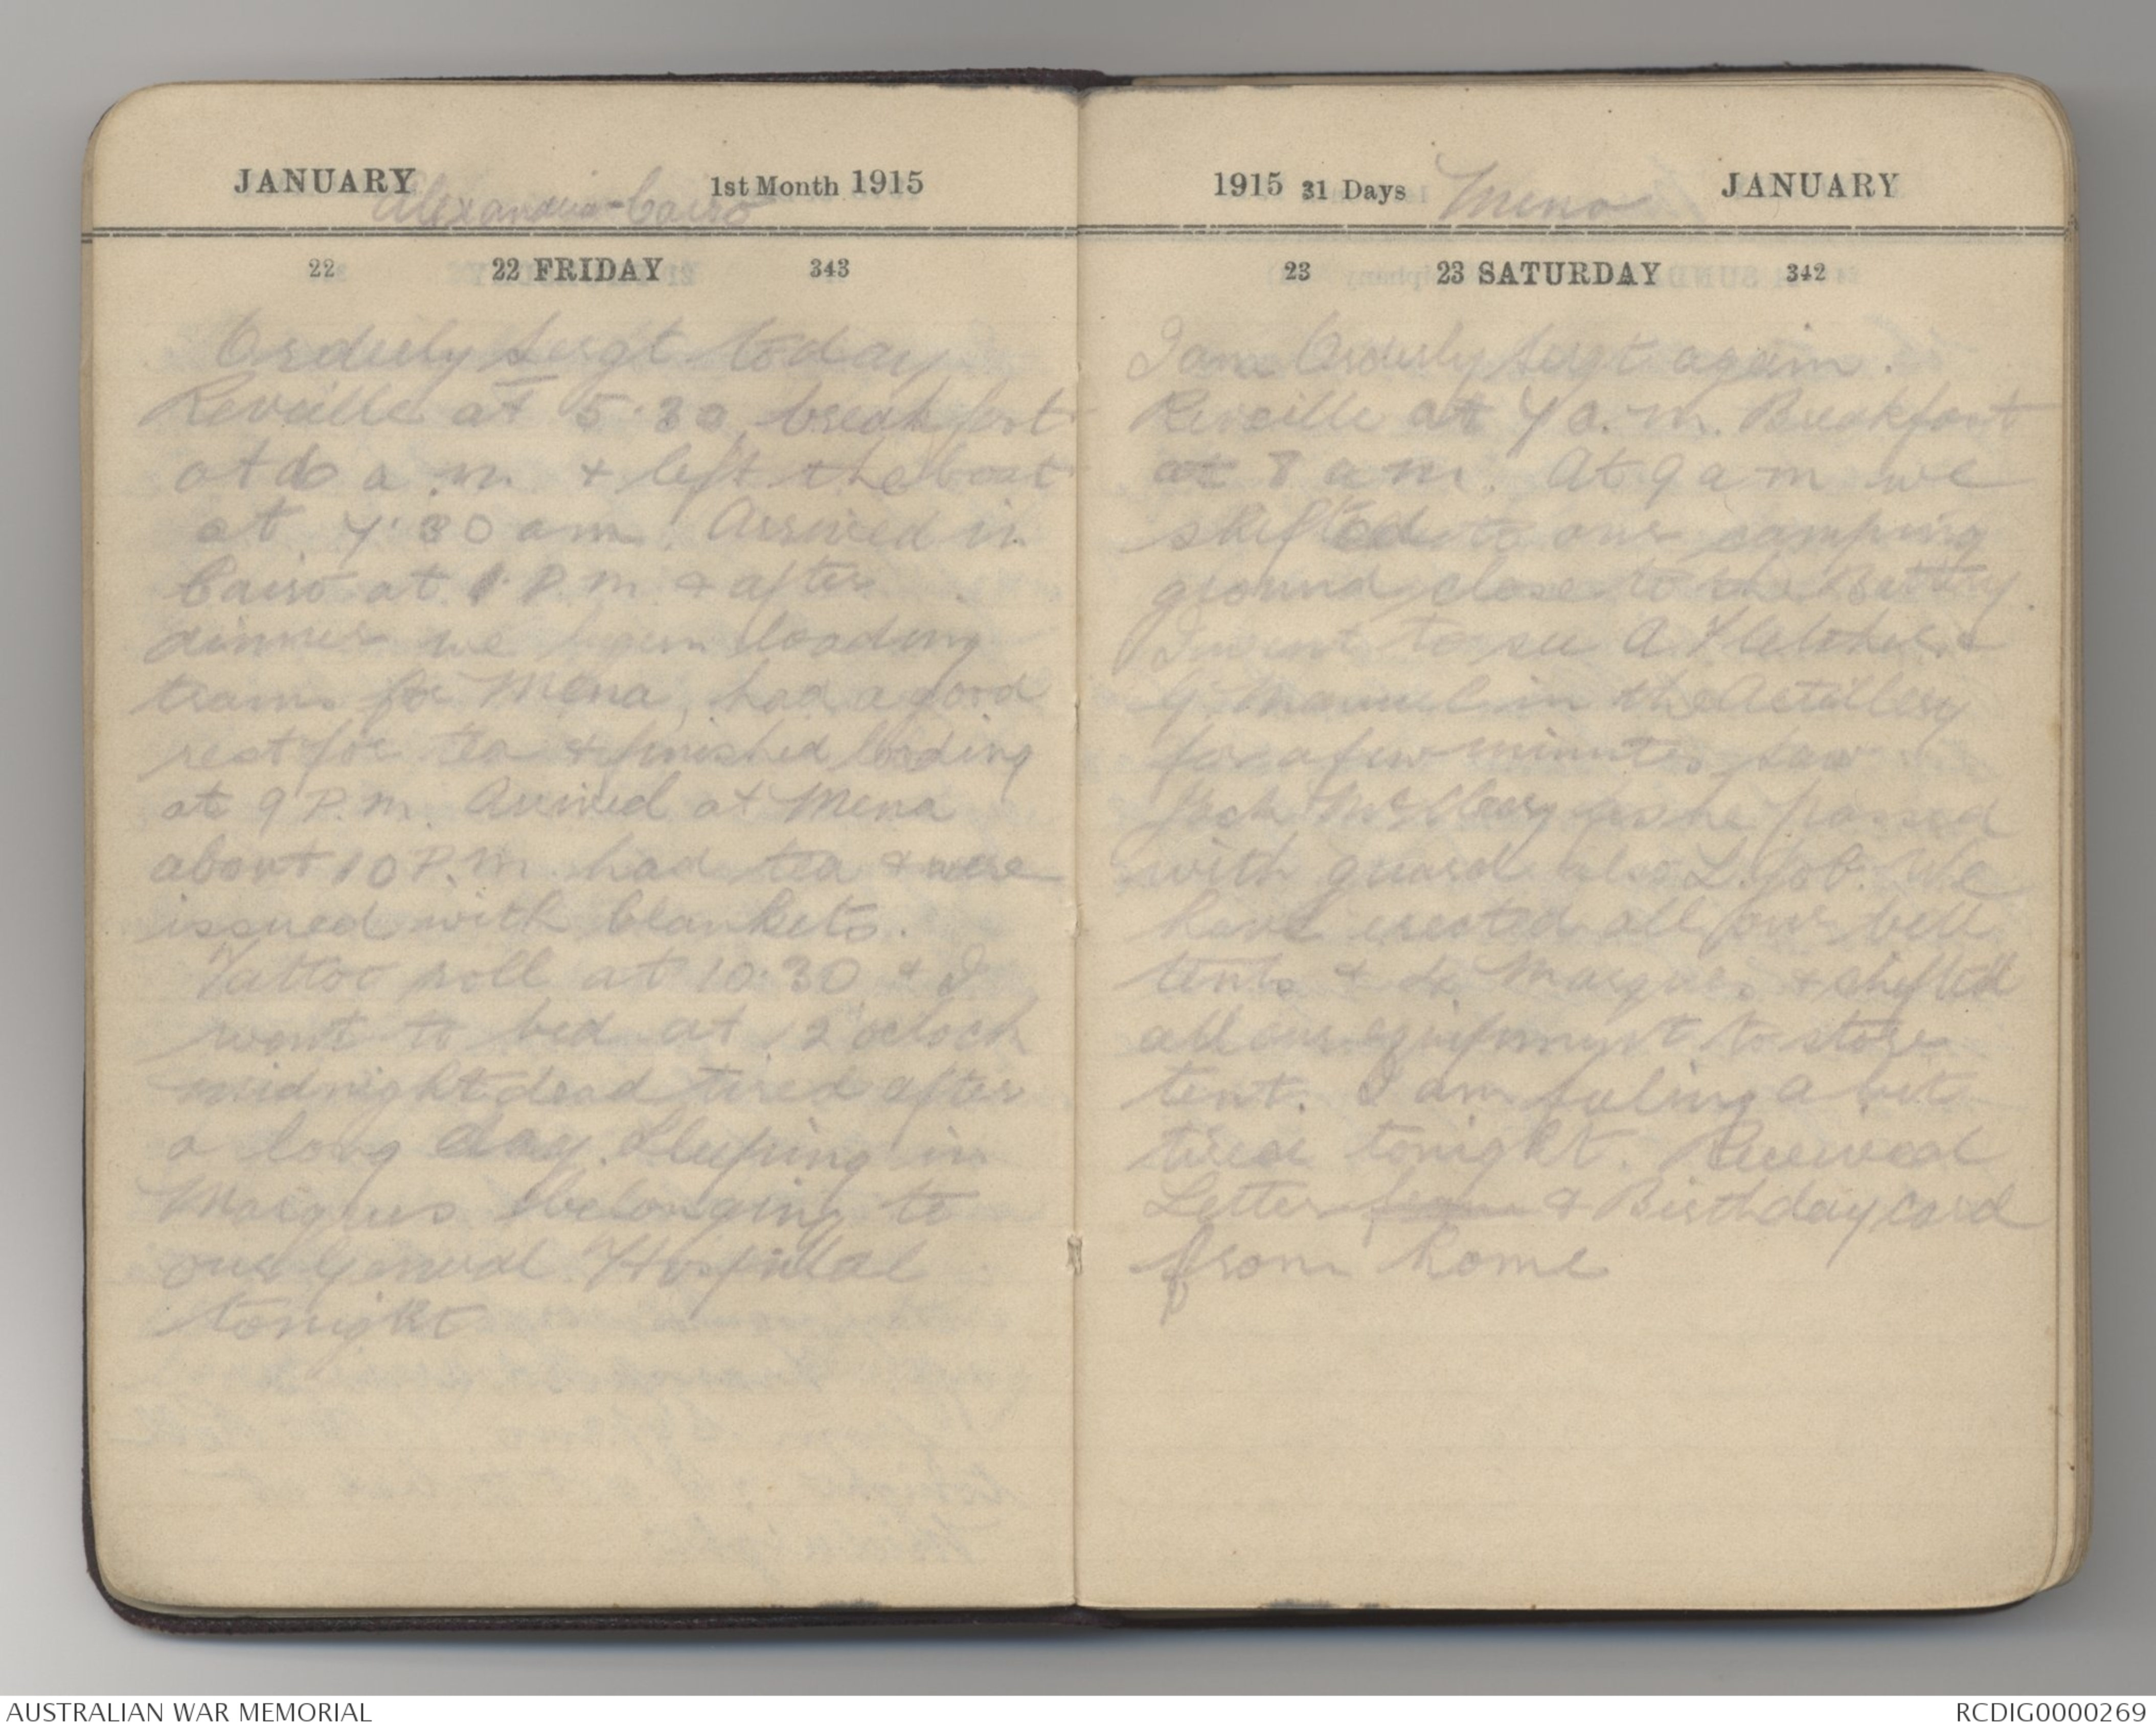 JANUARY 1st Month 1915
Alexandria-Cairo
22 22 FRIDAY 343
Orderly Sergt today
Reveille at 5.30, breakfast
at 6 a.m. & left the boat
at 7.30 am. Arrived in
Cairo at 1 P.M. & after
dinner we began loading
trams for Mena, had a good
rest for tea & finished loading
at 9 P.M. Arrived at Mena
about 10 P.M. had tea & were
issued with blankets.
Tattoo roll at 10.30 & I
went to bed at 12 oclock
midnight dead tired after
a long day. Sleeping in
Marques belonging to
our General Hospital
tonight
1915 31 Days Mena JANUARY
23 23 SATURDAY 342
I am Orderly Sergt again.
Reveille at 7 a.m. Breakfast
at 8 a m. At 9 a m we
shifted to our camping
ground close to the Battery.
I went to see A. Fletcher &
G. Manuel in the Artillery
for a few minutes, saw
as he passed
with guard also L. Job. We
have erected all our bell
tents & Marques & shifted
all our equipmynt to store
tent. I am feeling a bit
tired tonight. Received
Letter from & Birthday card
from home
AUSTRALIAN WAR MEMORIAL
RCDIG0000269